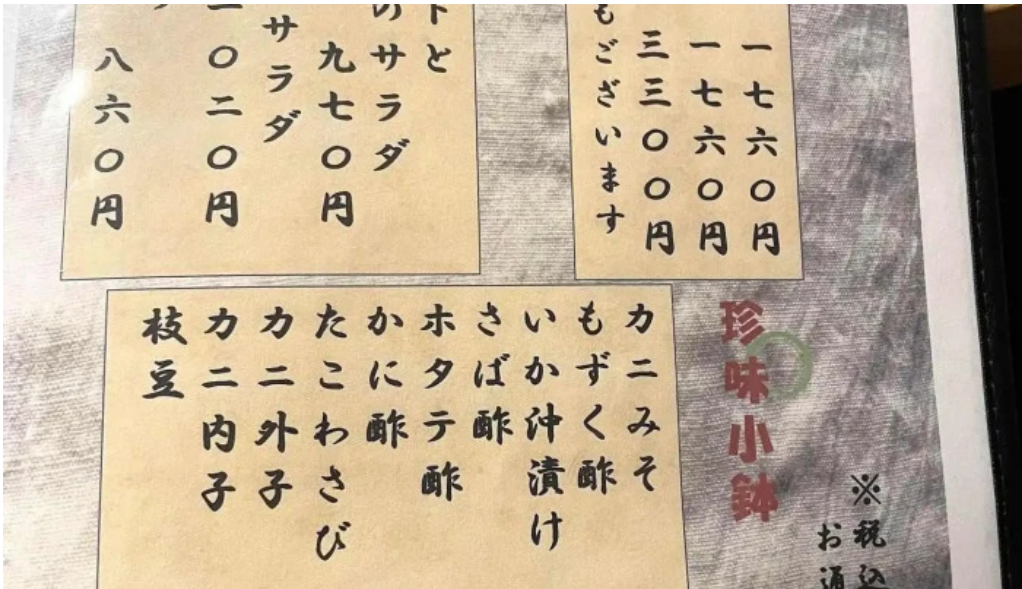 一七六〇円
一七六〇円
三三〇〇円
もございます
トと
のサラダ
九七〇円
サラダ
〇二〇円
八六〇円
珍味小鉢
カニみそ
もずく酢
いか沖漬け
さば酢
ホタテ酢
かに酢
たこわさび
カニ外子
カニ内子
枝豆
※税込
お通